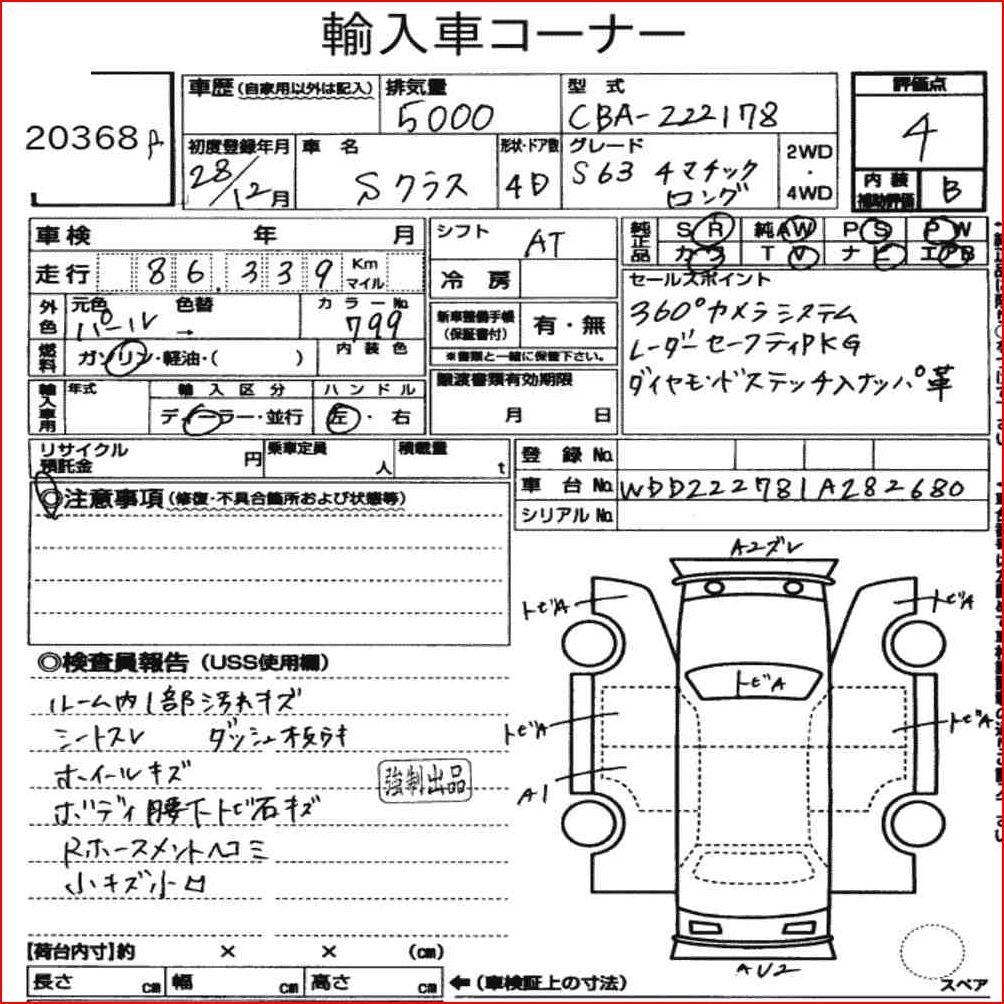 輸入車コーナー
20368
車歴(自家用以外は記入)
排気量
5000
型式
CBA-222178
評価点
4
初度登録年月
28/12月
車名
Sクラス
形状・ドア数
4D
グレード
S63 4マチック
ロング
2WD
・
4WD
内装
補助評価
B
車検 年 月
走行 86.339 Km
マイル
シフト
AT
冷房
純正品
SR 純AW PS PW
カワ TV ナビ エアB
外色
元色 色替 カラーNo
パール → 799
燃料
ガソリン・軽油・( )
内装色
新車整備手帳
(保証書付)
有・無
※書類と一緒に保管下さい。
セールスポイント
360°カメラシステム
レーダーセーフティPKG
ダイヤモンドステッチ入ナッパ革
輸入車用
年式
輸入区分
ディーラー・並行
ハンドル
左・右
譲渡書類有効期限
月 日
リサイクル
預託金 円
乗車定員 人
積載量 t
登録No.
車台No. WDD222781A282680
シリアルNo.
◎注意事項(修復・不具合箇所および状態等)
◎検査員報告(USS使用欄)
ルーム内1部汚れキズ
シートスレ ダッシュ板ウキ
ホイールキズ
強制出品
ボディ腰下トビ石キズ
Rホースメントヘコミ
小キズ小凹
A2ズレ
トビA
トビA
トビA
トビA
トビA
A1
AU2
スペア
【荷台内寸】約 × × (cm)
長さ cm 幅 cm 高さ cm ←(車検証上の寸法)